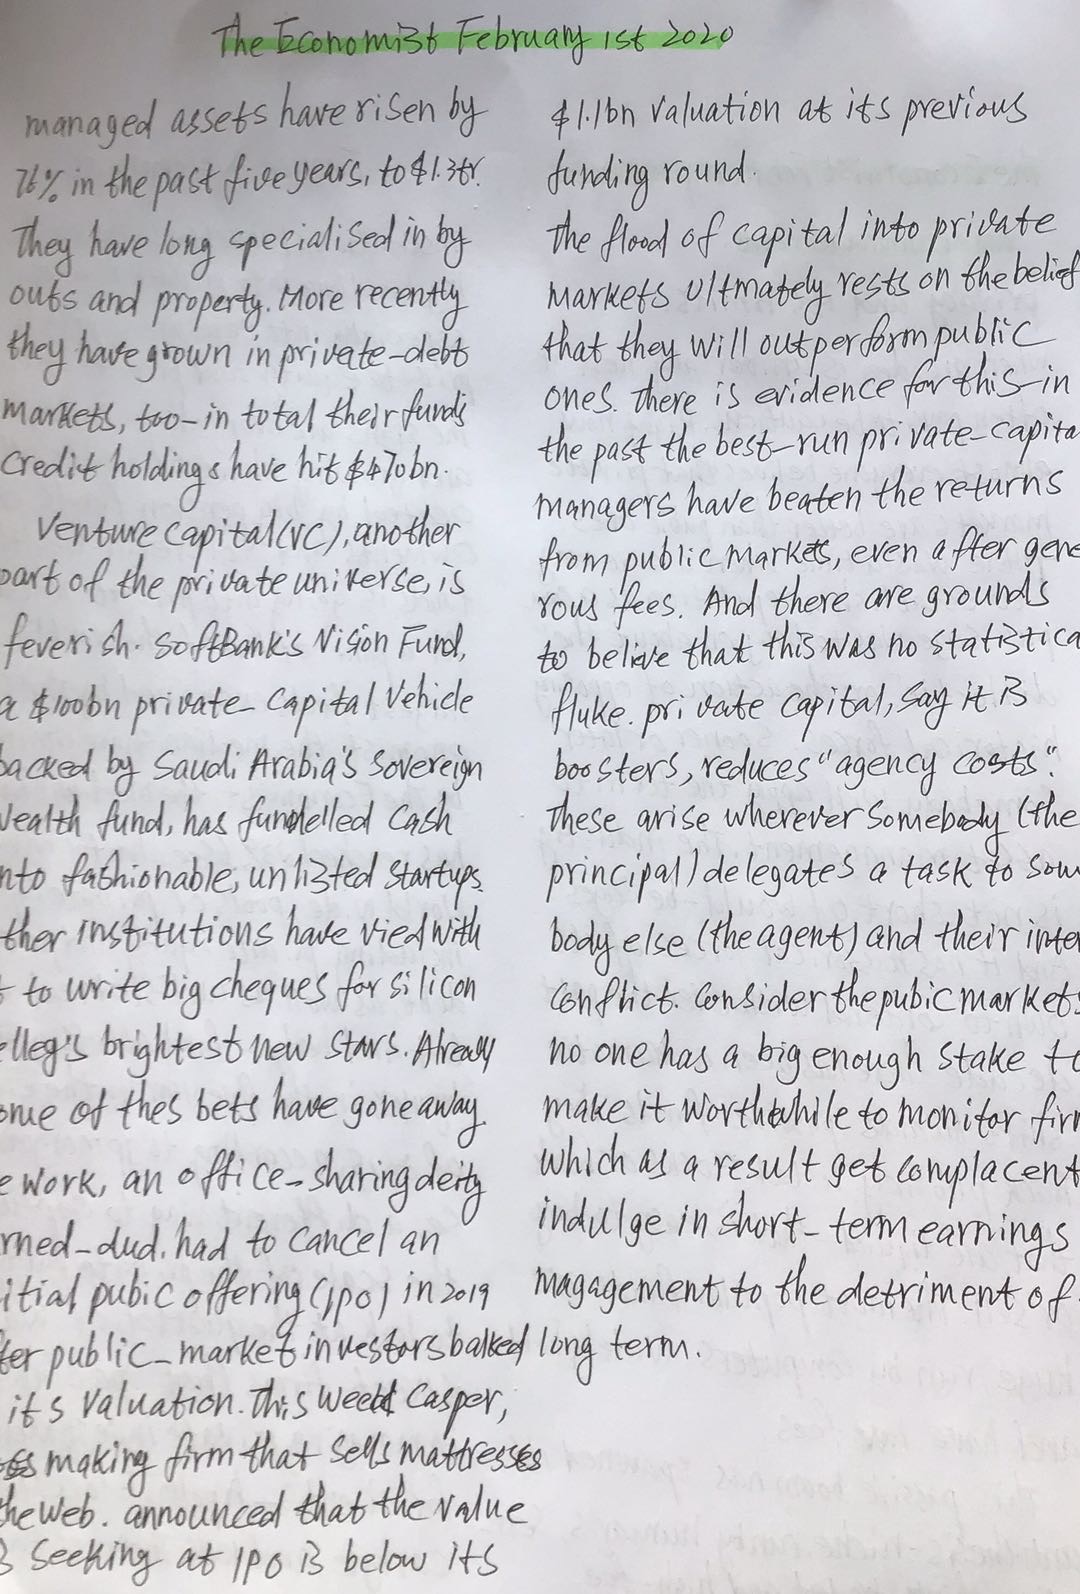 The Economist February 1st 2020
managed assets have risen by
76% in the past five years, to $1.3tr.
They have long specialised in by
outs and property. More recently
they have grown in private-debt
markets, too-in total their funds
credit holdings have hit $470bn.
Venture capital (VC), another
part of the private universe, is
feverish. SoftBank's Vision Fund,
a $100bn private-capital vehicle
backed by Saudi Arabia's sovereign
wealth fund, has funnelled cash
nto fashionable, unlisted startups.
ther institutions have vied with
t to write big cheques for silicon
elleg's brightest new stars. Already
ome of thes bets have gone away
e work, an office-sharing deity
rned-dud. had to cancel an
itial pubic offering (IPO) in 2019
fter public-market investors balked
it s valuation. This week Casper,
ss making firm that sells mattresses
the web. announced that the value
s seeking at IPO is below its
$1.1bn valuation at its previous
funding round.
the flood of capital into private
markets ultmately rests on the belief
that they will outperform public
ones. there is evidence for this-in
the past the best-run private-capita
managers have beaten the returns
from public markets, even after gene
rous fees. And there are grounds
to belive that this was no statistica
fluke. private capital, say it is
boosters, reduces "agency costs".
These arise wherever somebody (the
principal) delegates a task to som
body else (the agent) and their inte
conflict. Consider the pubic markets
no one has a big enough stake to
make it worthwhile to monitor fir
which as a result get complacent
indulge in short-term earnings
magagement to the detriment of
long term.